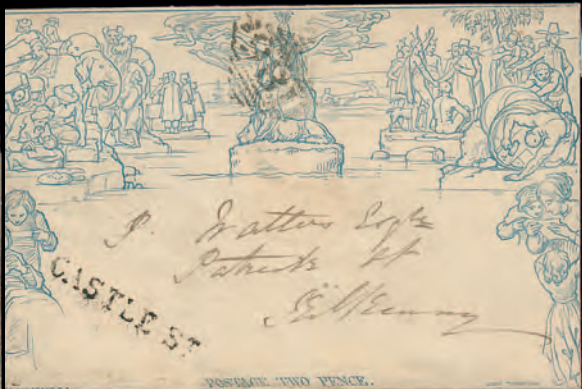 P. Watters Esqre
Patrick St
Kilkenny
CASTLE ST
POSTAGE TWO PENCE.